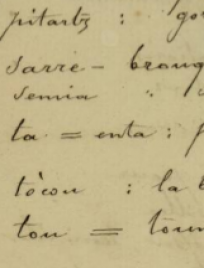 pitarts : go
sarre - broug
semia " "
ta = enta :
tòcou : la
tou = toun